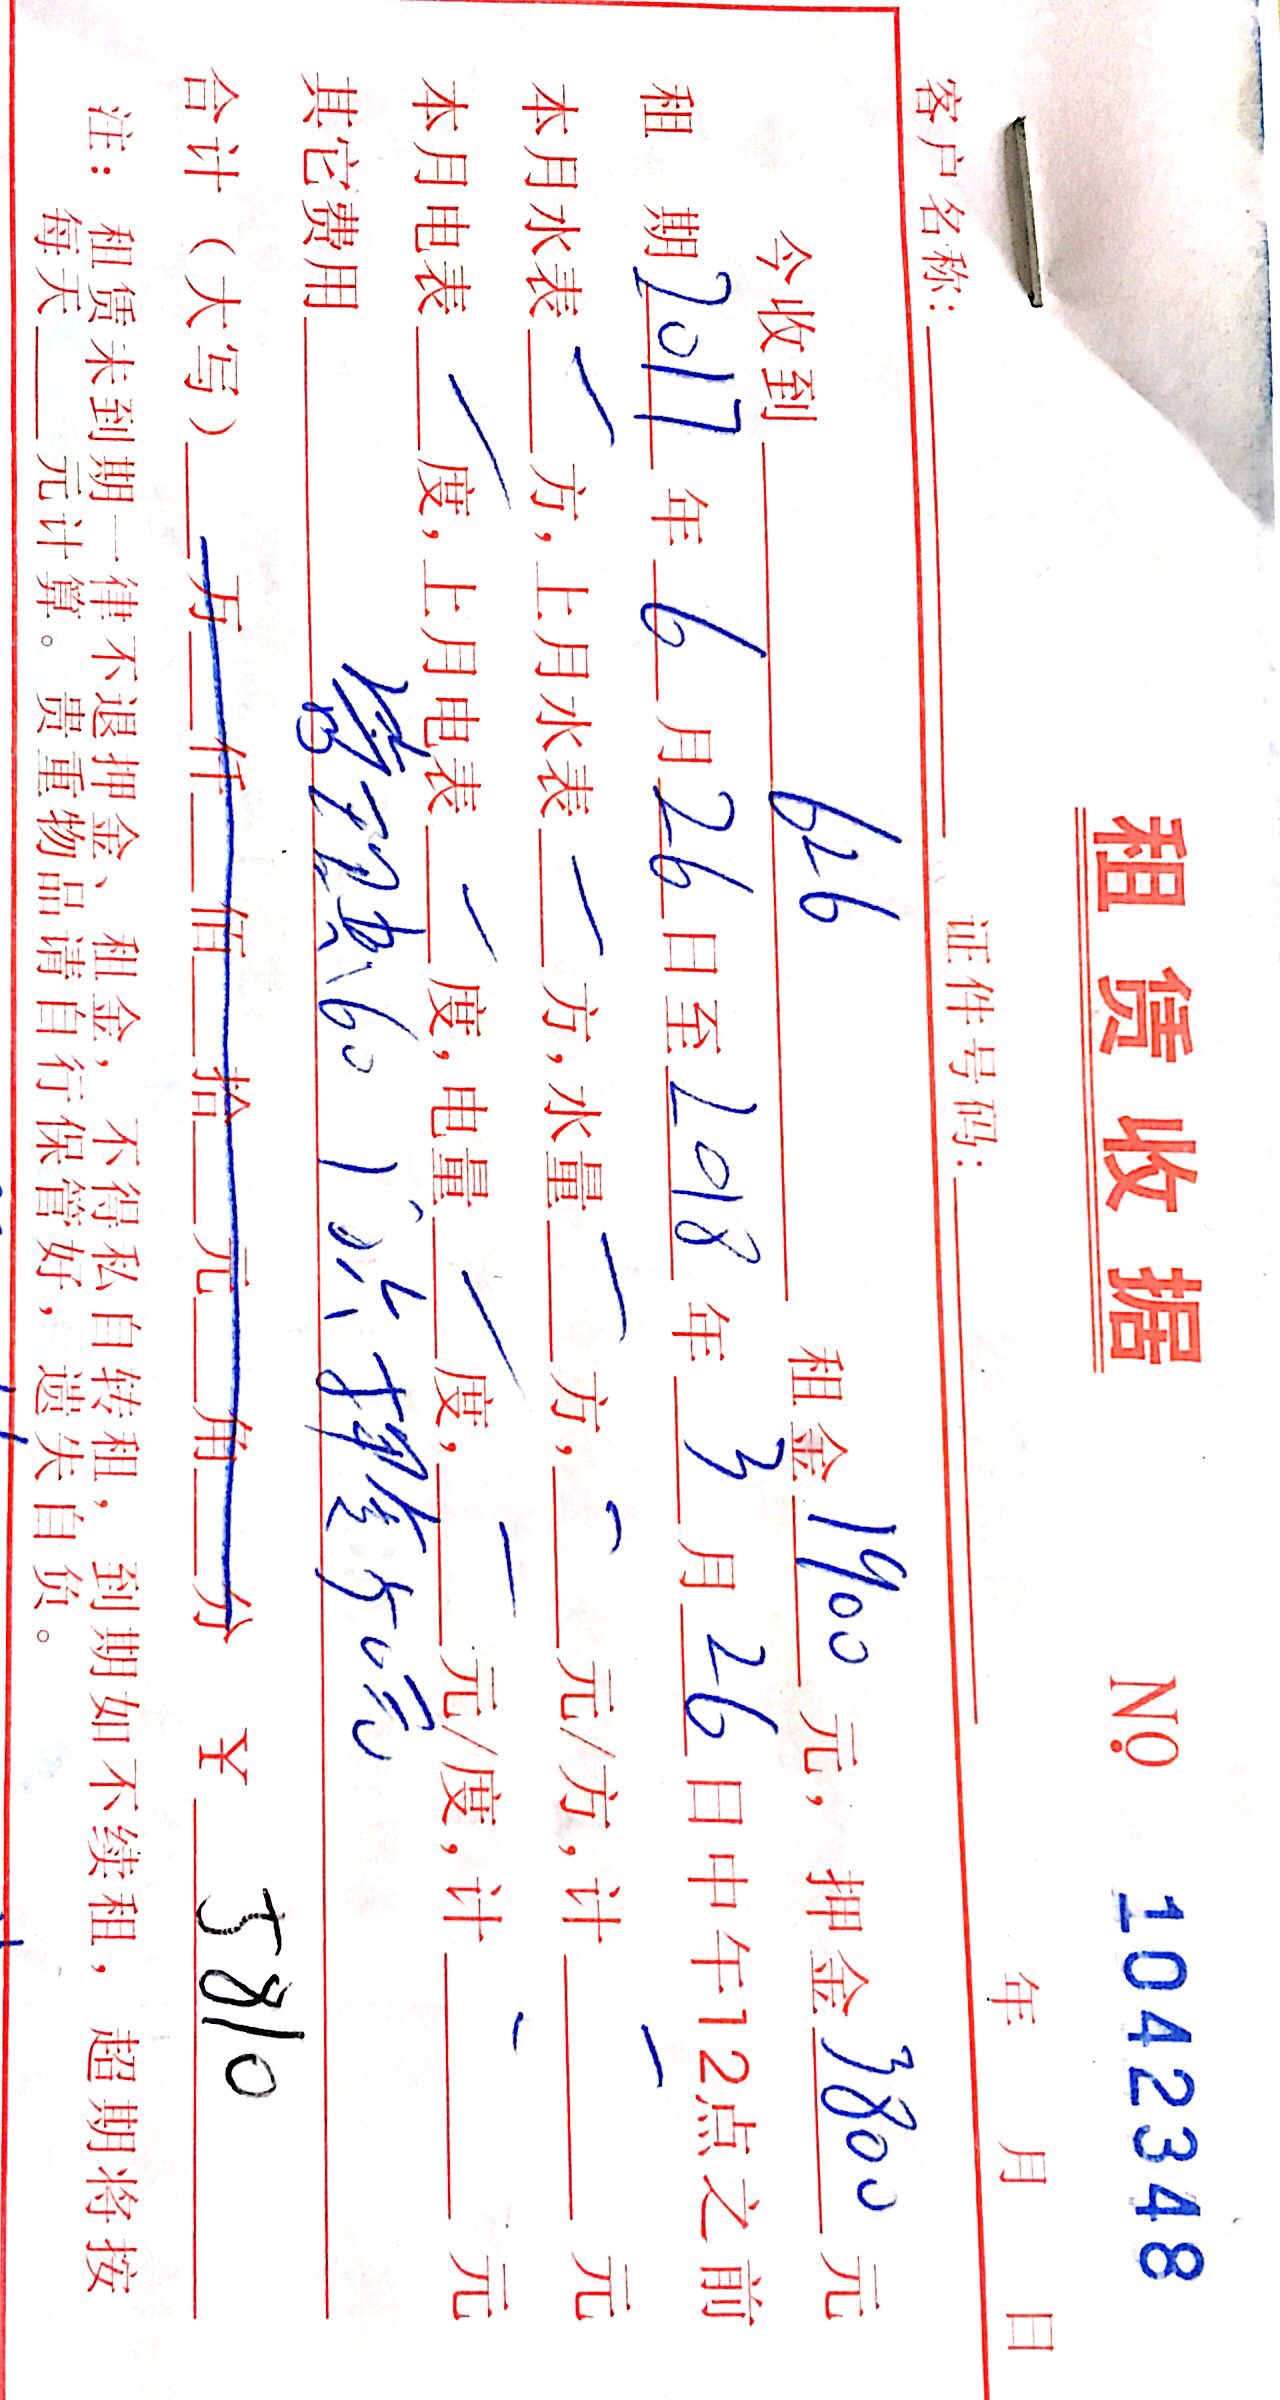 租赁收据 № 1042348
年 月 日
客户名称： 证件号码：
今收到 626 租金 1900 元，押金 3800 元
租 期 2017 年 6 月 26 日至 2018 年 3 月 26 日中午12点之前
本月水表 方，上月水表 方，水量 方， 元/方，计 元
本月电表 度，上月电表 度，电量 度， 元/度，计 元
其它费用 管理费60 50元
合计（大写） 万 仟 佰 拾 元 角 分 ¥ 5810
注：租赁未到期一律不退押金、租金，不得私自转租，到期如不续租，超期将按
每天 元计算。贵重物品请自行保管好，遗失自负。